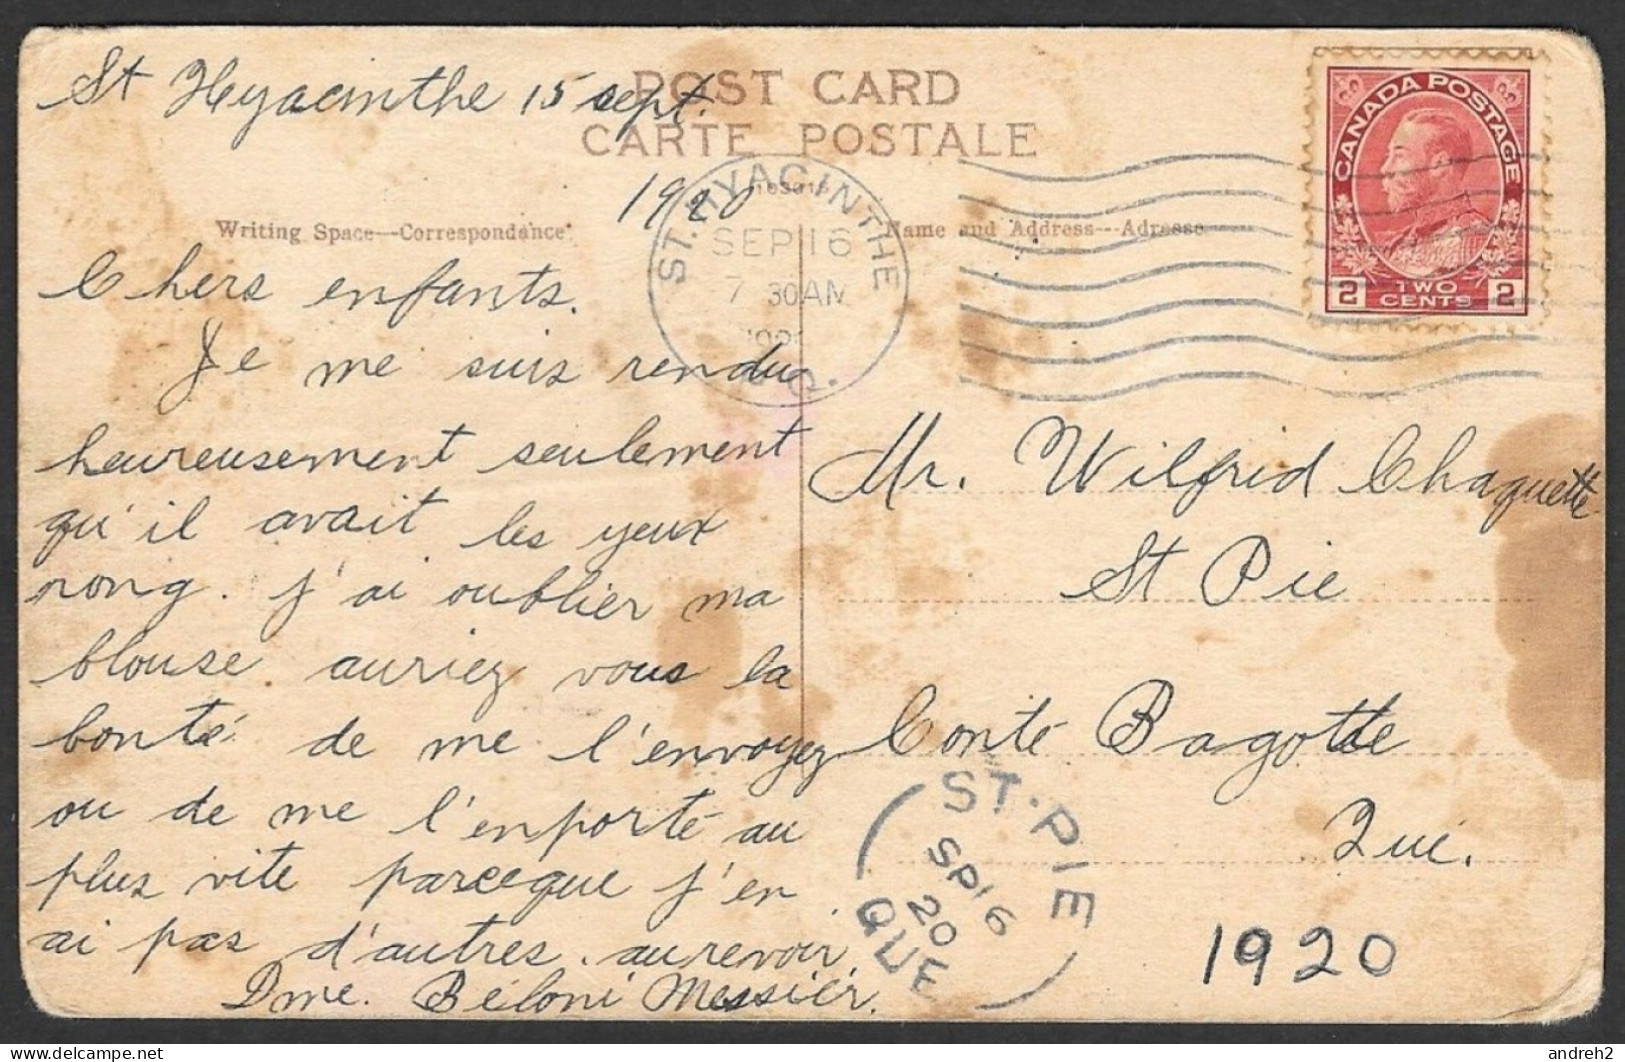 St Hyacinthe 15 sept.
1920
POST CARD
CARTE POSTALE
Writing Space—Correspondance
Name and Address---Adresse
ST. HYACINTHE
SEP 16
7 30 AM
CANADA POSTAGE
2 TWO CENTS 2
Chers enfants.
Je me suis rendu
heureusement seulement
qu'il avait les yeux
rong. j'ai oublier ma
blouse auriez vous la
bonté de me l'envoyez
ou de me l'enporté au
plus vite parceque j'en
ai pas d'autres. aurevoir
Dme. Béloni Messier.
Mr. Wilfrid Chaquette
St Pie
Conté Bagotte
Qué.
ST. PIE
SP 16
20
QUE
1920
andreh2